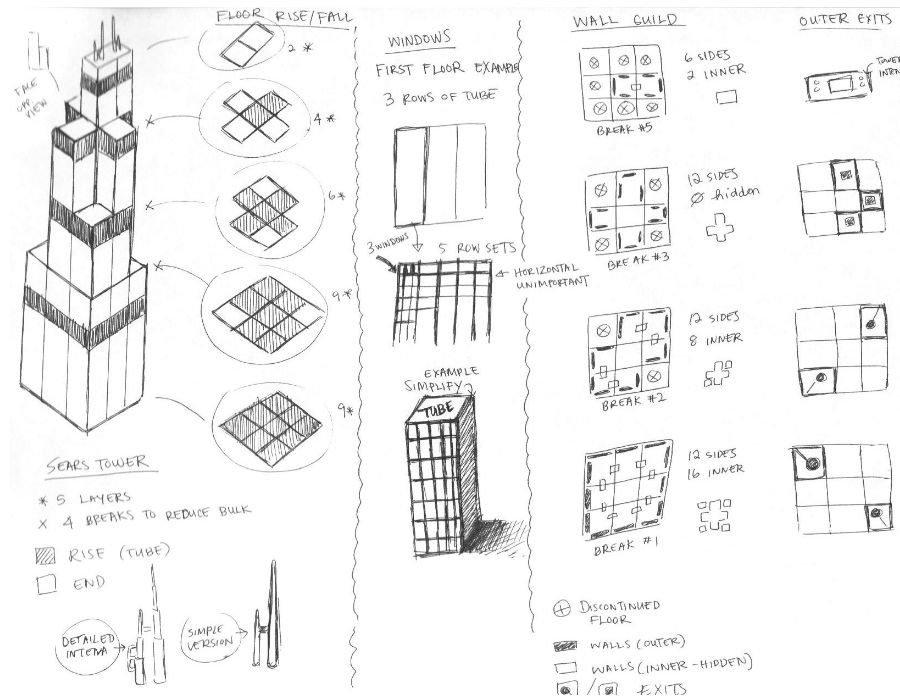 FLOOR RISE/FALL
FACE
OFF
VIEW
2 *
4 *
6 *
9 *
9 *
X
X
X
SEARS TOWER
* 5 LAYERS
X 4 BREAKS TO REDUCE BULK
RISE (TUBE)
END
DETAILED
SIMPLE
VERSION
WINDOWS
FIRST FLOOR EXAMPLE
3 ROWS OF TUBE
3 WINDOWS
5 ROW SETS
HORIZONTAL
UNIMPORTANT
EXAMPLE
SIMPLIFY
TUBE
WALL GUILD
6 SIDES
2 INNER
BREAK #5
12 SIDES
Ø hidden
BREAK #3
12 SIDES
8 INNER
BREAK #2
12 SIDES
16 INNER
BREAK #1
DISCONTINUED
FLOOR
WALLS (OUTER)
WALLS (INNER-HIDDEN)
EXITS
OUTER EXITS